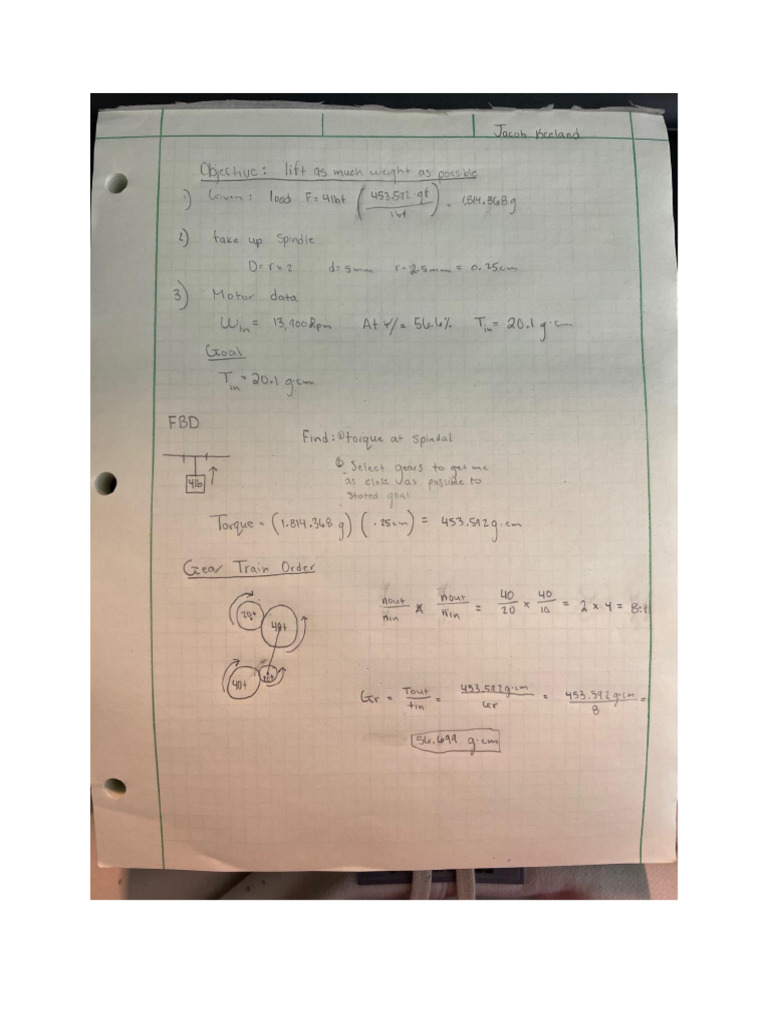 Jacob Kreland
Objective: lift as much weight as possible
1) Given: load F= 4lbf (453.592 gf / lbf) = 1,814.368 g
2) take up Spindle
D= r x 2 d= 5mm r= 2.5mm = 0.25cm
3) Motor data
Win = 13,100 Rpm At 56.6% Tin = 20.1 g·cm
Goal
Tin = 20.1 g·cm
FBD
Find: ① torque at spindal
② Select gears to get me
as close as possible to
stated goal
4lb
Torque = (1,814.368 g) (.25cm) = 453.592 g·cm
Gear Train Order
nout/nin x nout/nin = 40/20 x 40/10 = 2 x 4 = 8:1
20t
40t
40t
10t
Gr = Tout/tin = 453.592g·cm/Gr = 453.592g·cm/8 =
56.699 g·cm